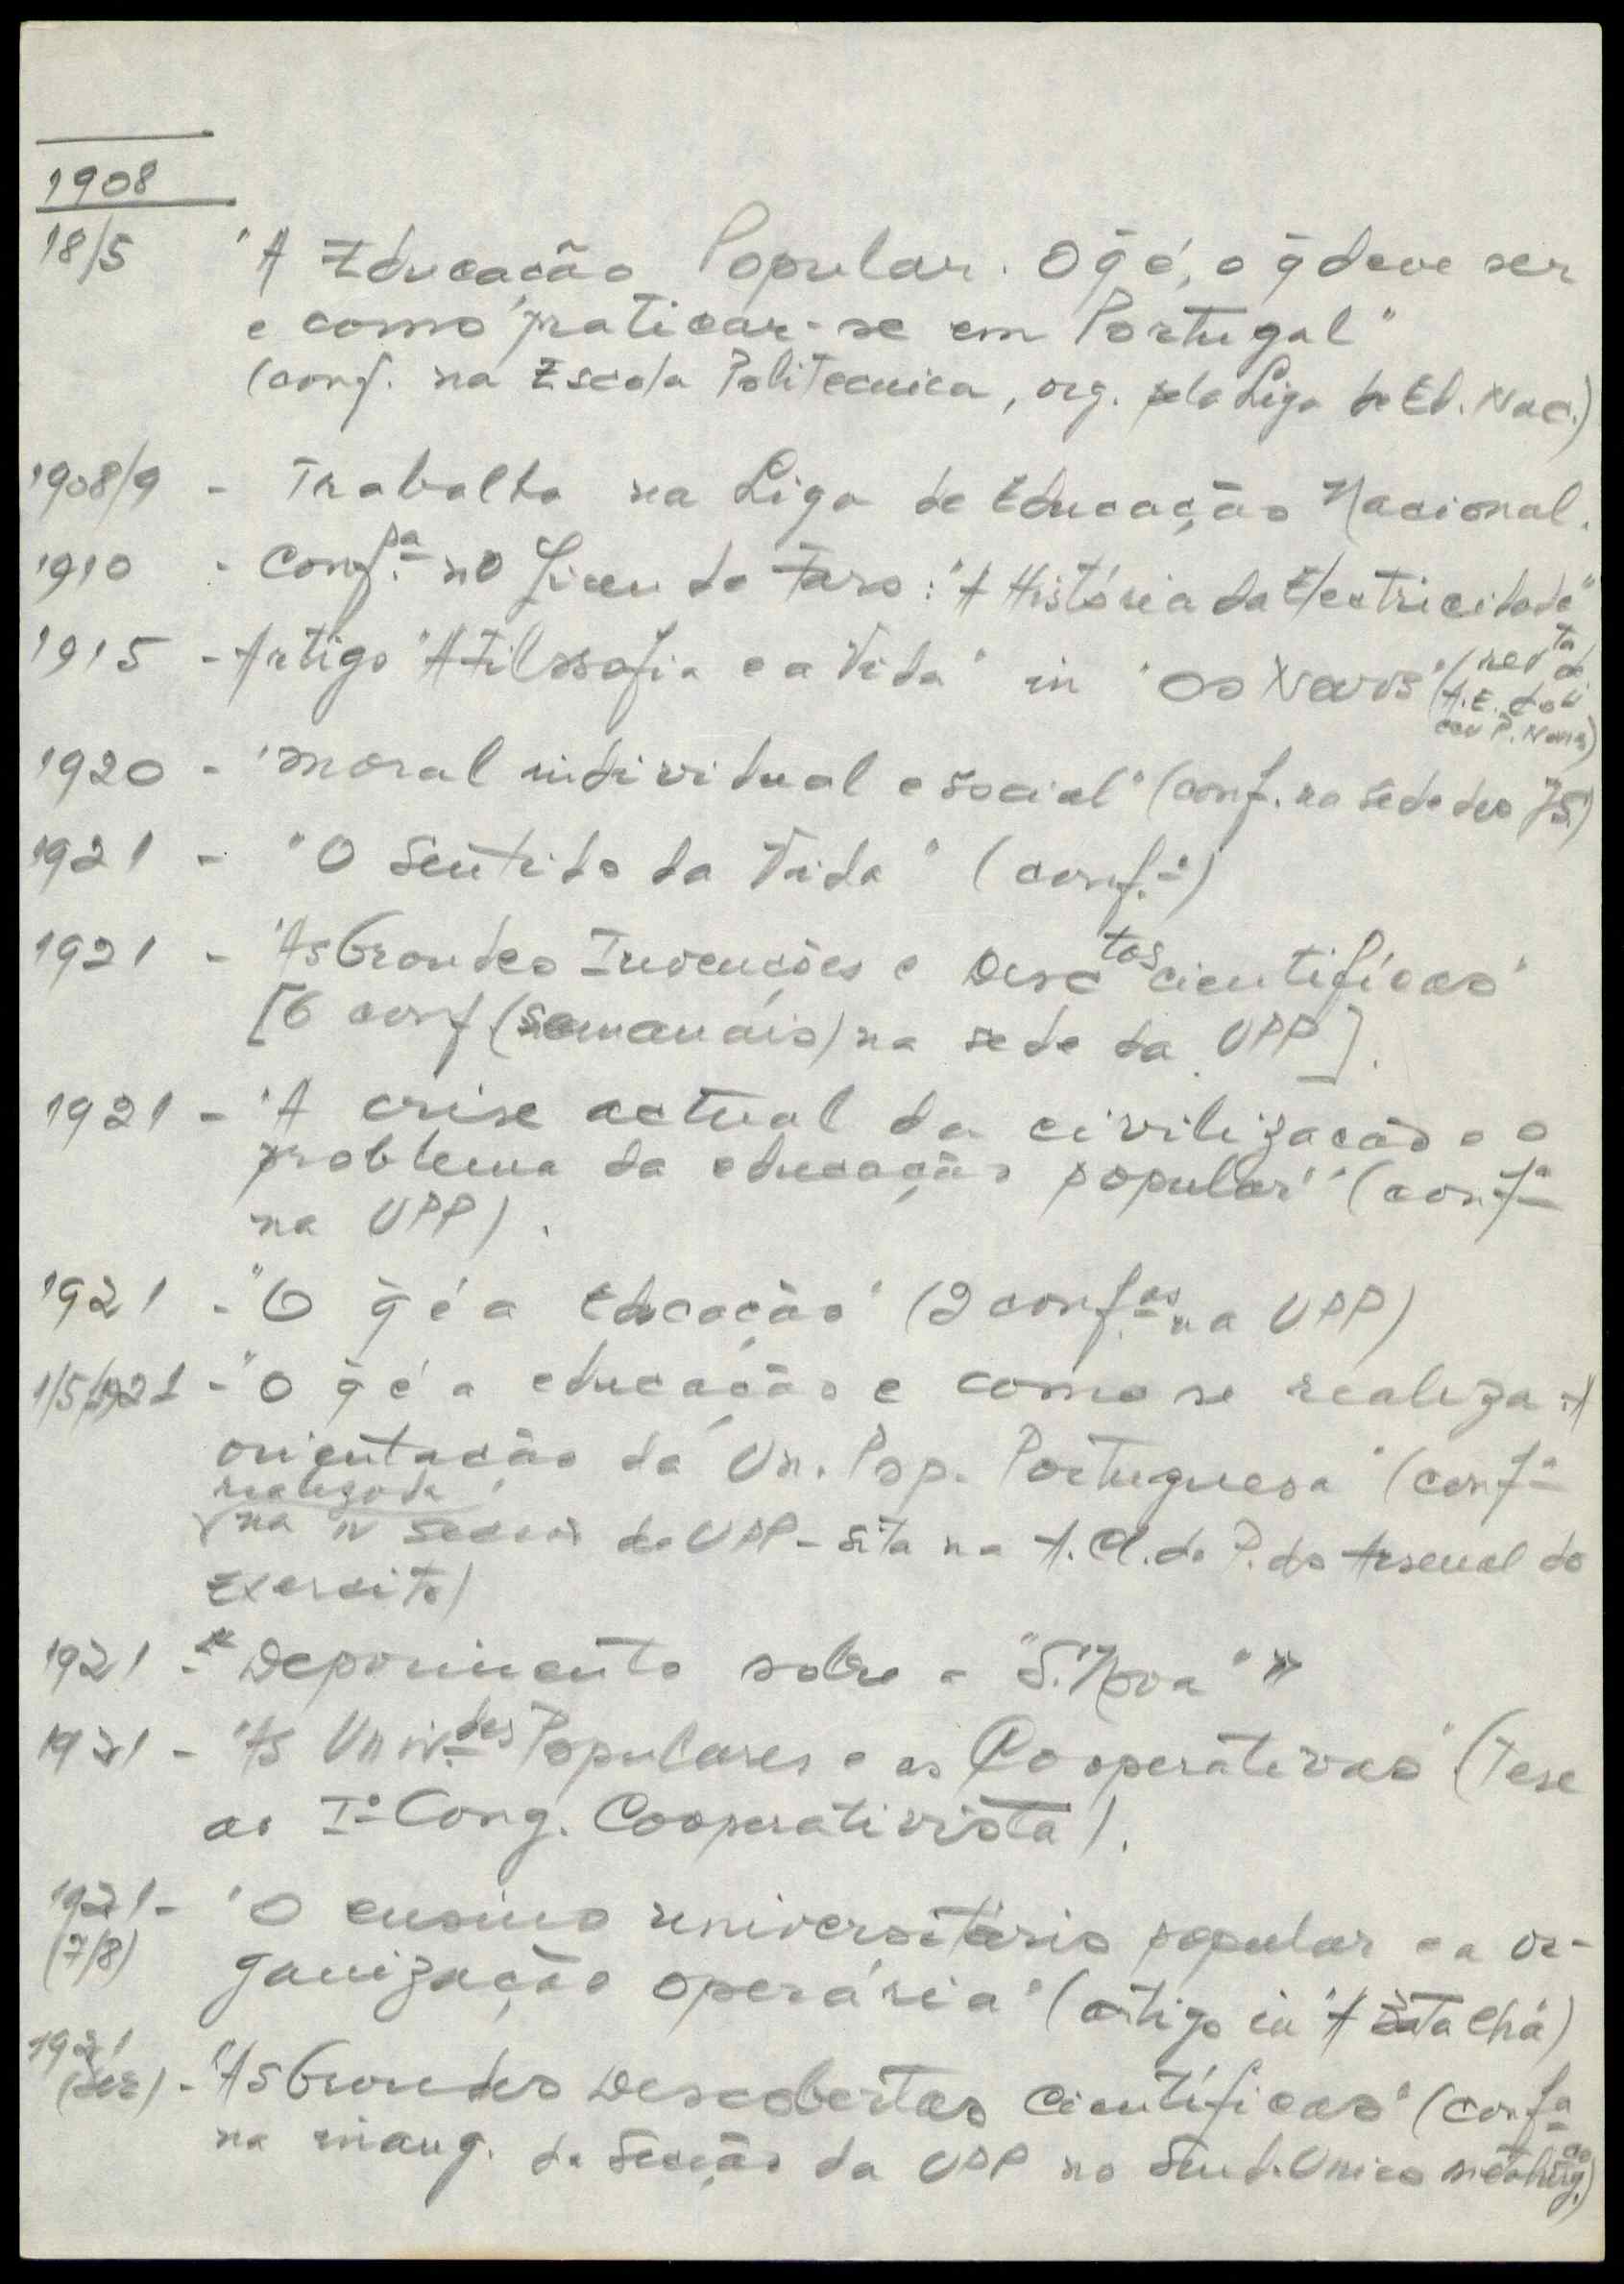 1908
18/5 "A Educação Popular. O q̃ é, o q̃ deve ser
e como praticar-se em Portugal"
(conf. na Escola Politecnica, org. pela Liga de Ed. Nac.)
1908/9 - Trabalho na Liga de Educação Nacional.
1910 - Conf.ª no Liceu de Faro: "A História da Electricidade"
1915 - Artigo "A Filosofia e a Vida" in "Os Novos" (revta da
A.E. do Li
ceu P. Nunes)
1920 - "Moral individual e social" (conf. na sede das JS)
1921 - "O Sentido da Vida" (conf.ª)
1921 - "As Grandes Invenções e Desctas cientificas"
[6 conf (semanais) na sede da UPP].
1921 - "A crise actual da civilização e o
problema da educação popular" (conf.ª
na UPP).
1921 - "O q̃ é a Educação" (2 conf.as na UPP)
1/5/1921 - "O q̃ é a educação e como se realiza: A
orientação da Un. Pop. Portuguesa" (conf.ª
realizada
na secção da UPP - sita na A. Cl. do P. do Arsenal do
Exercito)
1921 - "Depoimento sobre a "S. Nova""
1921 - "As Univ.des Populares e as Cooperativas" (Tese
ao Iº Cong. Cooperativista).
1921 - "O ensino universitário popular e a or-
(7/8) ganização operária" (artigo in "A Batalha)
1921
(dez) - "As Grandes Descobertas Cientificas" (conf.ª
na inaug. da Secção da UPP no Sind. Unico Metalurgco)